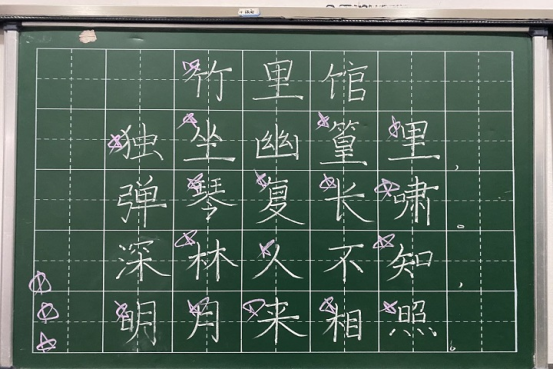 竹里馆
独坐幽篁里，
弹琴复长啸。
深林人不知，
明月来相照。